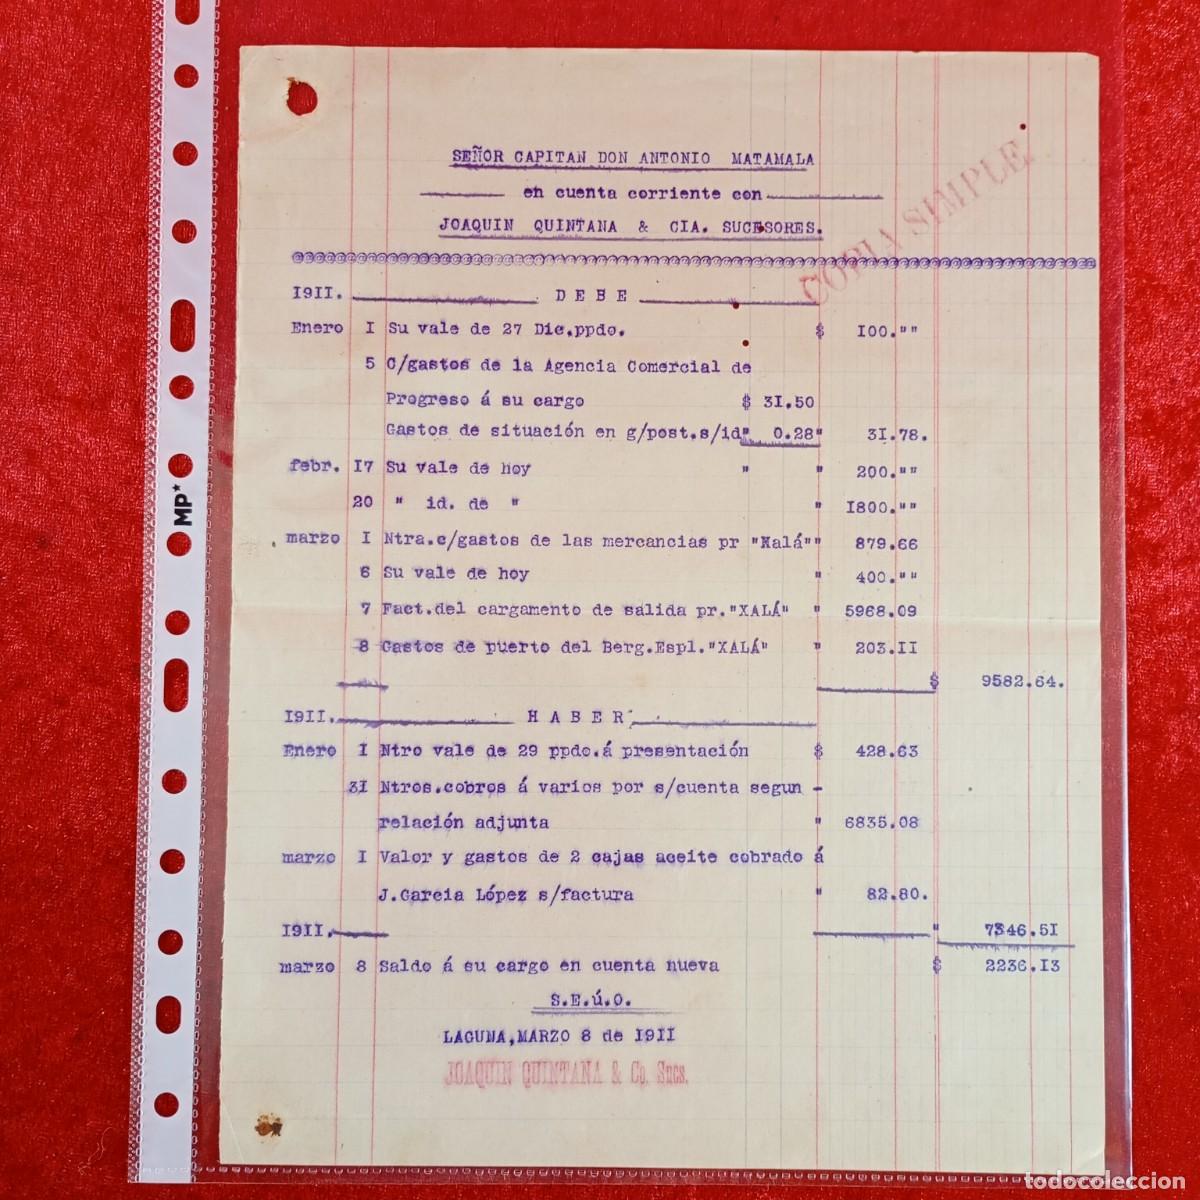 SEÑOR CAPITAN DON ANTONIO MATAMALA
en cuenta corriente con
JOAQUIN QUINTANA & CIA. SUCESORES.
COPIA SIMPLE
1911. DEBE
Enero 1 Su vale de 27 Dic.ppdo. $ 100.""
5 C/gastos de la Agencia Comercial de
Progreso á su cargo $ 31.50
Gastos de situación en g/post.s/id" 0.28" 31.78.
febr. 17 Su vale de hoy " " 200.""
20 " id. de " " 1800.""
marzo 1 Ntra.c/gastos de las mercancias pr "Xalá"" 879.66
6 Su vale de hoy " 400.""
7 Fact.del cargamento de salida pr."XALÁ" " 5968.09
8 Gastos de puerto del Berg.Espl."XALÁ" " 203.11
$ 9582.64.
1911. HABER
Enero 1 Ntro vale de 29 ppdo.á presentación $ 428.63
31 Ntros.cobros á varios por s/cuenta segun -
relación adjunta " 6835.08
marzo 1 Valor y gastos de 2 cajas aceite cobrado á
J.Garcia López s/factura " 82.80.
1911. " 7346.51
marzo 8 Saldo á su cargo en cuenta nueva $ 2236.13
S.E.ú.O.
LAGUNA,MARZO 8 de 1911
JOAQUIN QUINTANA & Co. Sucs.
MP*
todocoleccion